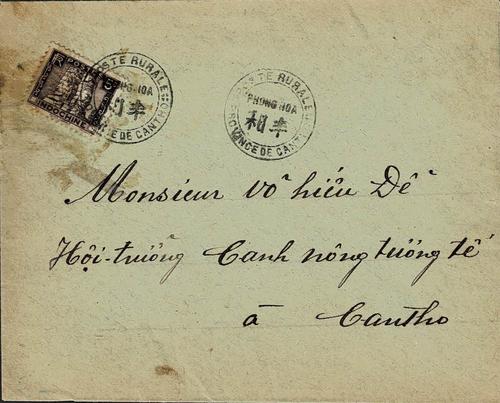 POSTES
INDOCHINE
POSTE RURALE
PHONG HOA
和丰
PROVINCE DE CANTHO
POSTE RURALE
PHONG HOA
和丰
PROVINCE DE CANTHO
Monsieur Võ hiếu Đễ
Hội-trưởng Canh nông tương tế
à Cantho